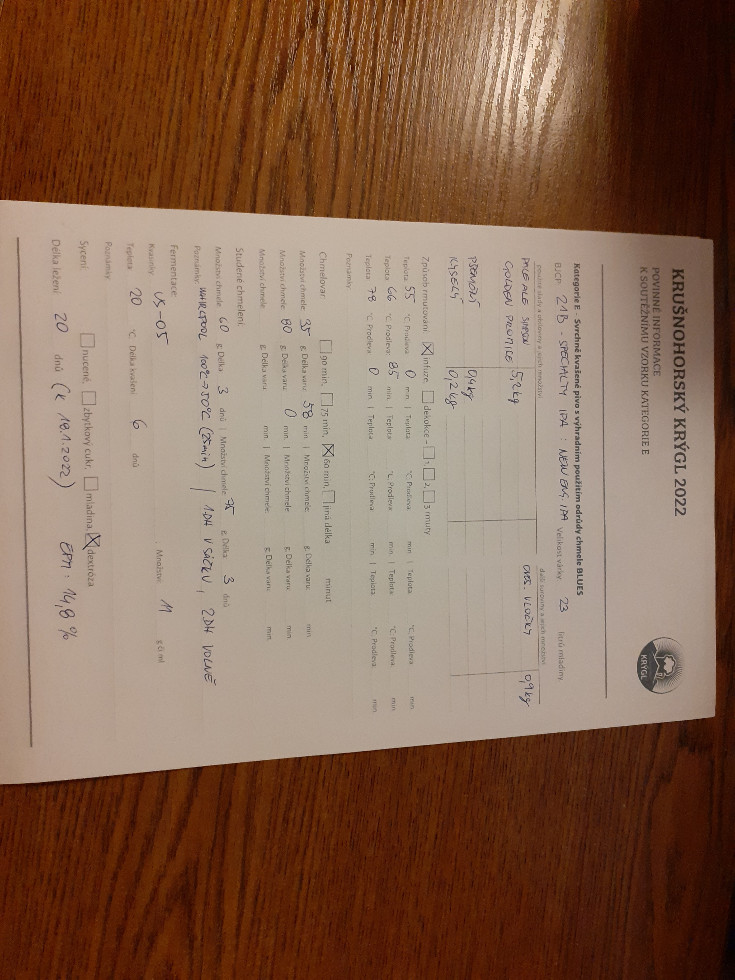 KRUŠNOHORSKÝ KRÝGL 2022
POVINNÉ INFORMACE
K SOUTĚŽNÍMU VZORKU KATEGORIE E
KRÝGL
Kategorie E - Svrchně kvašené pivo s výhradním použitím odrůdy chmele BLUES
BJCP: 21B - SPECIALTY IPA : NEW ENG. IPA Velikost várky: 23 litrů mladiny
použité slady a obiloviny a jejich množství další suroviny a jejich množství
PALE ALE SIMPSON
GOLDEN PROMISE 5,2kg OVES. VLOČKY 0,9kg
PŠENIČNÝ 0,4kg
KYSELÝ 0,2kg
Způsob rmutování: ☒ infuze, ☐ dekokce - ☐ 1, ☐ 2, ☐ 3 rmuty
Teplota 55 °C, Prodleva: 0 min. | Teplota °C, Prodleva: min. | Teplota °C, Prodleva: min
Teplota 66 °C, Prodleva: 85 min. | Teplota °C, Prodleva: min. | Teplota °C, Prodleva: min
Teplota 78 °C, Prodleva: 0 min. | Teplota °C, Prodleva: min. | Teplota °C, Prodleva: min
Poznámky
Chmelovar: ☐ 90 min, ☐ 75 min, ☒ 60 min, ☐ jiná délka minut
Množství chmele: 35 g, Délka varu: 58 min. | Množství chmele: g, Délka varu: min
Množství chmele: 80 g, Délka varu: 0 min. | Množství chmele: g, Délka varu: min
Množství chmele: g, Délka varu: min. | Množství chmele: g, Délka varu: min
Studené chmelení:
Množství chmele: 60 g, Délka: 3 dnů | Množství chmele: 75 g, Délka: 3 dnů
Poznámky: WHIRLPOOL 100°C → 50°C (25min) / 1DH V SÁČKU, 2DH VOLNĚ
Fermentace:
Kvasinky: US-05 Množství: 11 g či ml
Teplota: 20 °C, Délka kvašení: 6 dnů
Poznámky:
Sycení: ☐ nucené, ☐ zbytkový cukr, ☐ mladina, ☒ dextróza
Délka ležení: 20 dnů (K 18.1.2022) EPM: 14,8 %